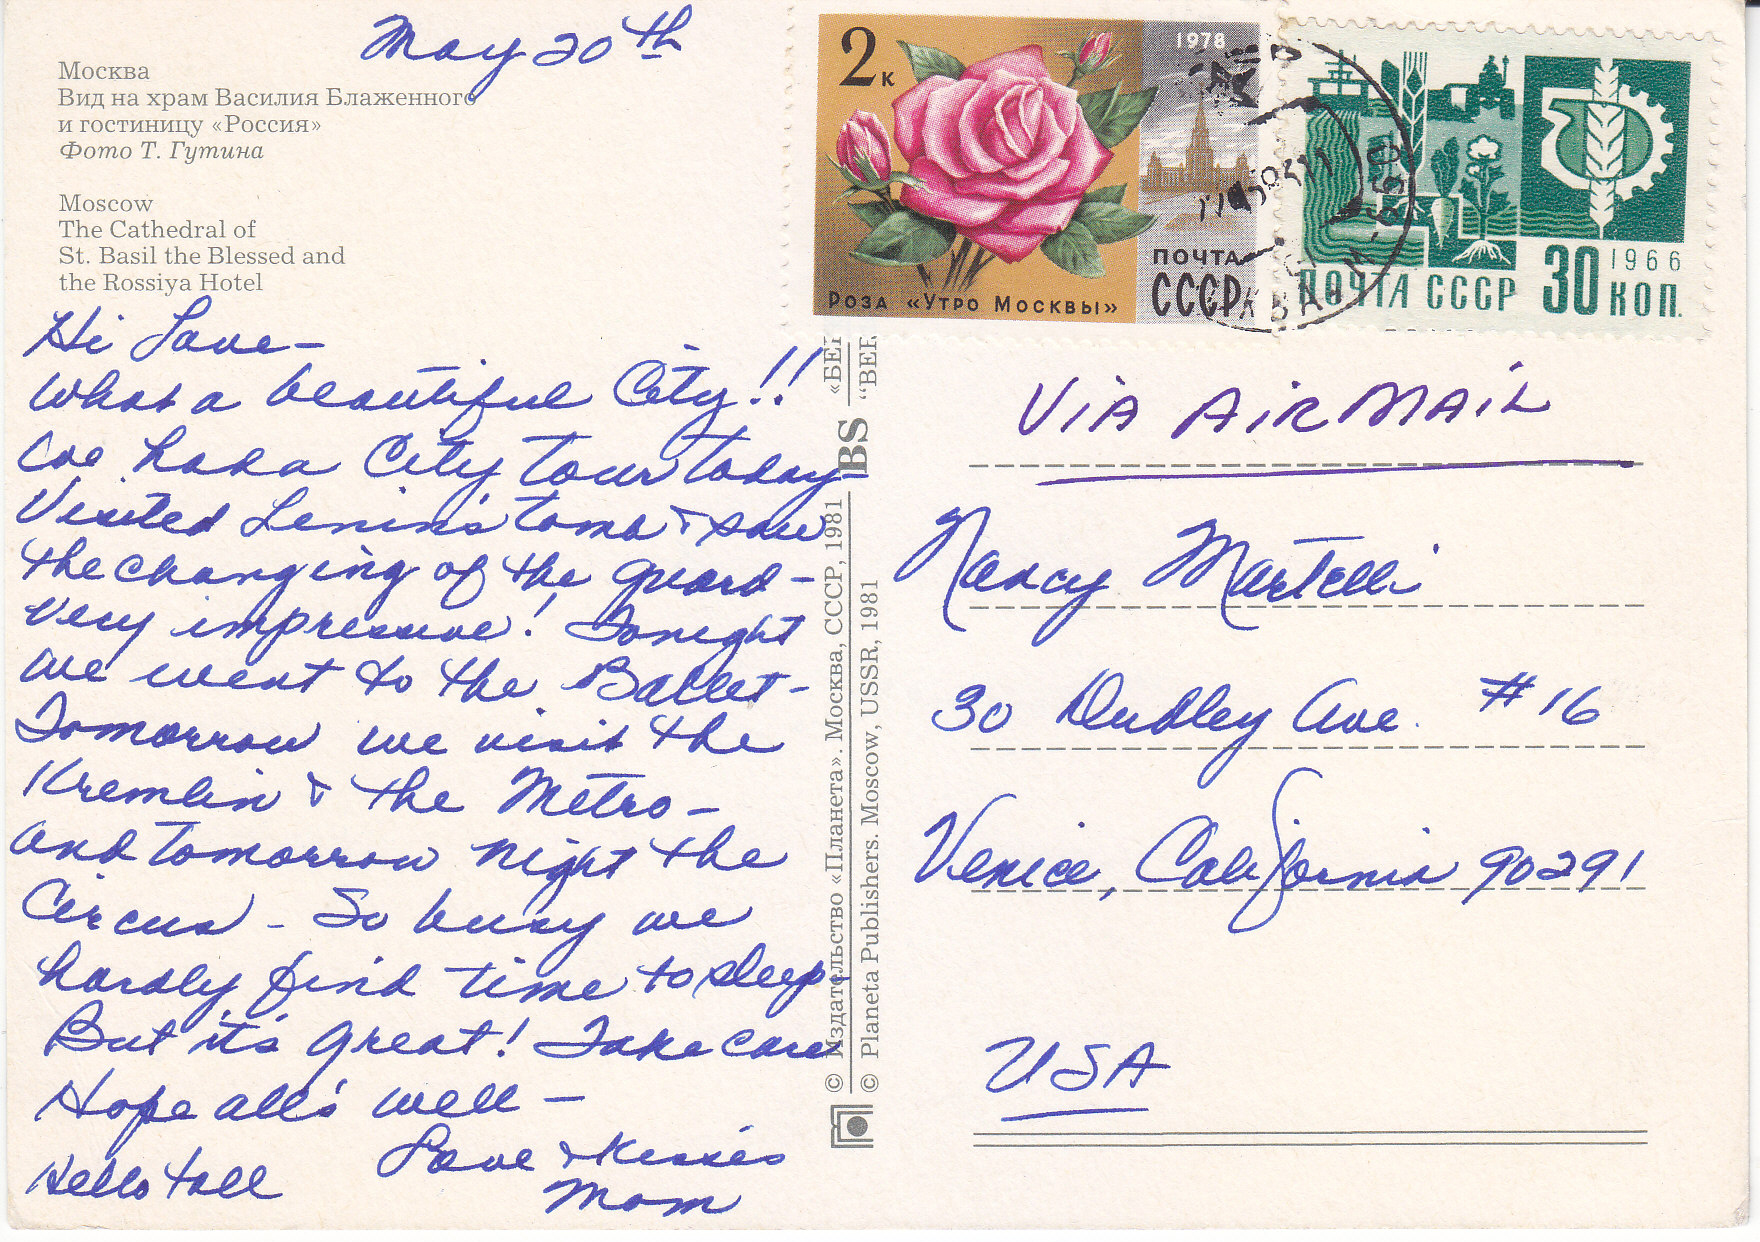 May 20th
Москва
Вид на храм Василия Блаженного
и гостиницу «Россия»
Фото Т. Гутина
Moscow
The Cathedral of
St. Basil the Blessed and
the Rossiya Hotel
Hi Love-
What a beautiful City!!
We had a City tour today-
Visited Lenin's tomb & saw
the changing of the guard-
very impressive! Tonight
we went to the Ballet-
Tomorrow we visit the
Kremlin & the Metro-
and tomorrow night the
Circus - So busy we
hardly find time to sleep-
But it's great! Take care
Hope all's well-
Love & Kisses
Mom
Hello to all
2к
1978
ПОЧТА
СССР
Роза «Утро Москвы»
1966
ПОЧТА СССР 30 КОП.
© Издательство «Планета». Москва, СССР, 1981
© Planeta Publishers. Moscow, USSR, 1981
BS
Via Air Mail
Nancy Martelli
30 Dudley Ave. #16
Venice, California 90291
USA